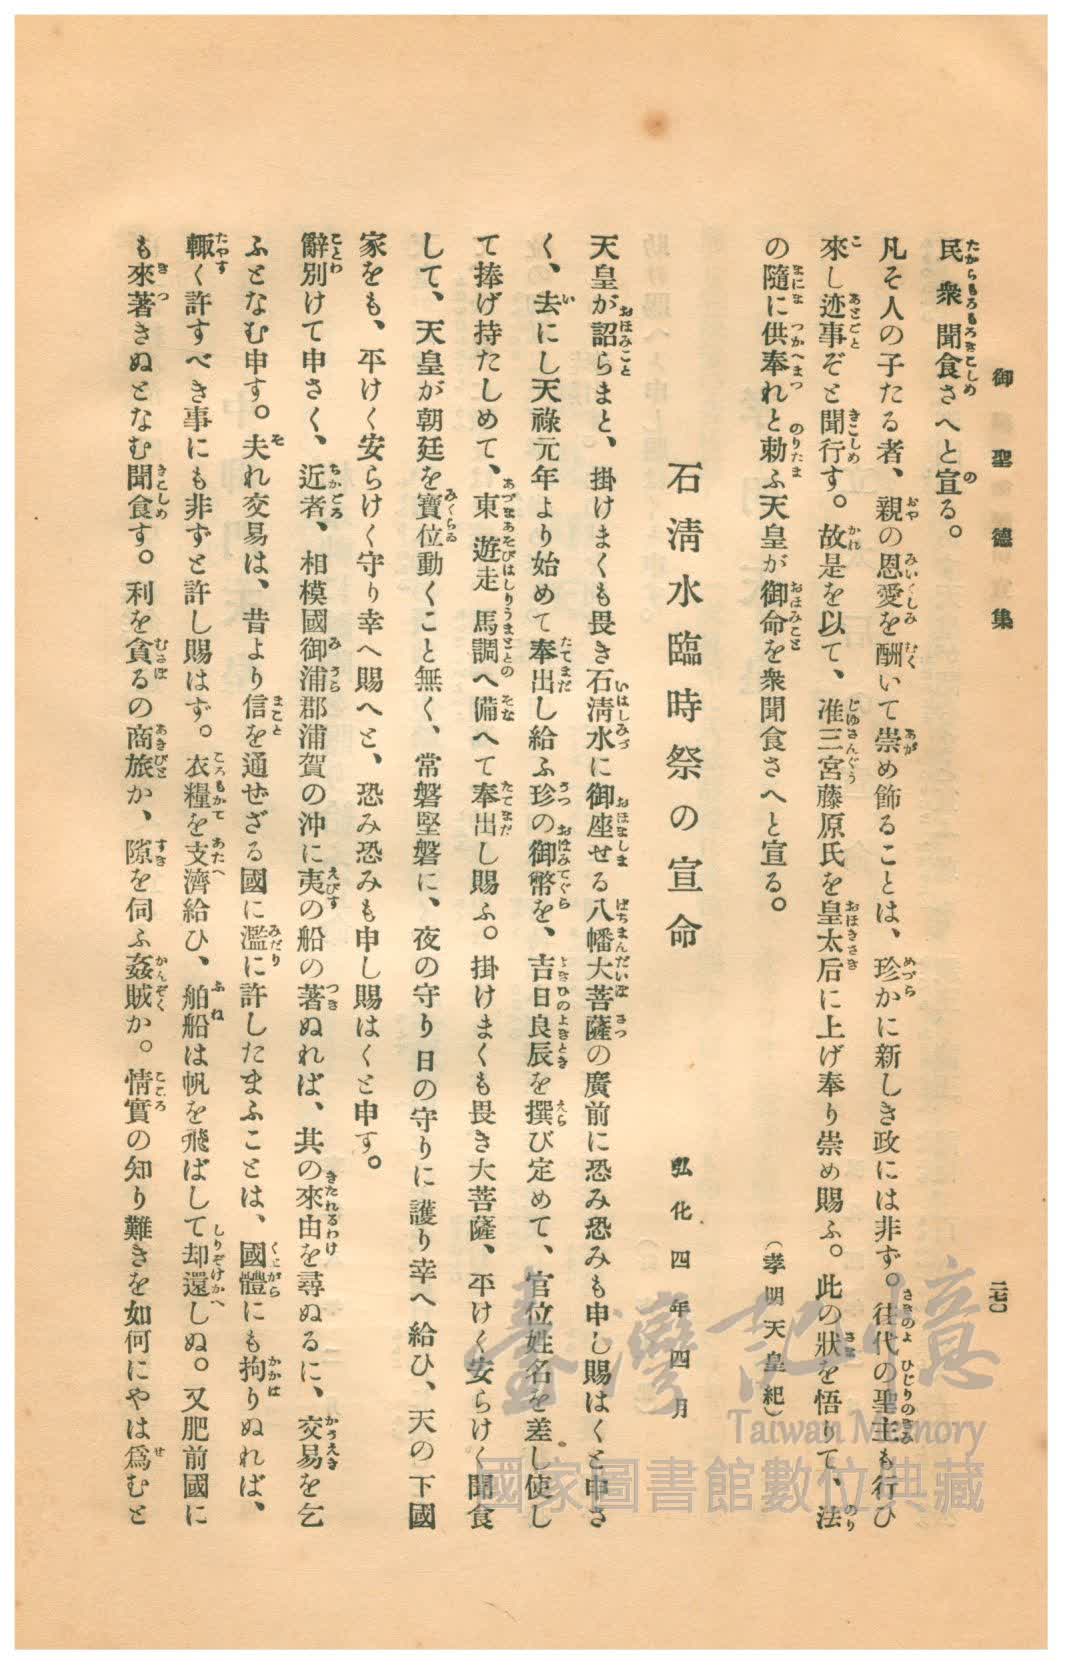 御聖德集
二七〇
民衆聞食さへと宣る。
凡そ人の子たる者、親の恩愛を酬いて崇め飾ることは、珍かに新しき政には非ず。往代の聖主も行ひ
來し迹事ぞと聞行す。故是を以て、准三宮藤原氏を皇太后に上げ奉り崇め賜ふ。此の狀を悟りて、法
の隨に供奉れと勅ふ天皇が御命を衆聞食さへと宣る。
（孝明天皇紀）
石淸水臨時祭の宣命
弘化四年四月
天皇が詔らまと、掛けまくも畏き石淸水に御座せる八幡大菩薩の廣前に恐み恐みも申し賜はくと申さ
く、去にし天祿元年より始めて奉出し給ふ珍の御幣を、吉日良辰を撰び定めて、官位姓名を差し使し
て捧げ持たしめて、東遊走馬調へ備へて奉出し賜ふ。掛けまくも畏き大菩薩、平けく安らけく聞食
して、天皇が朝廷を寶位動くこと無く、常磐堅磐に、夜の守り日の守りに護り幸へ給ひ、天の下國
家をも、平けく安らけく守り幸へ賜へと、恐み恐みも申し賜はくと申す。
辭別けて申さく、近者、相模國御浦郡浦賀の沖に夷の船の著ぬれば、其の來由を尋ぬるに、交易を乞
ふとなむ申す。夫れ交易は、昔より信を通せざる國に濫に許したまふことは、國體にも拘りぬれば、
輙く許すべき事にも非ずと許し賜はず。衣糧を支濟給ひ、舶船は帆を飛ばして却還しぬ。又肥前國に
も來著きぬとなむ聞食す。利を貪るの商旅か、隙を伺ふ姦賊か。情實の知り難きを如何にやは爲むと
臺灣記憶
Taiwan Memory
國家圖書館數位典藏